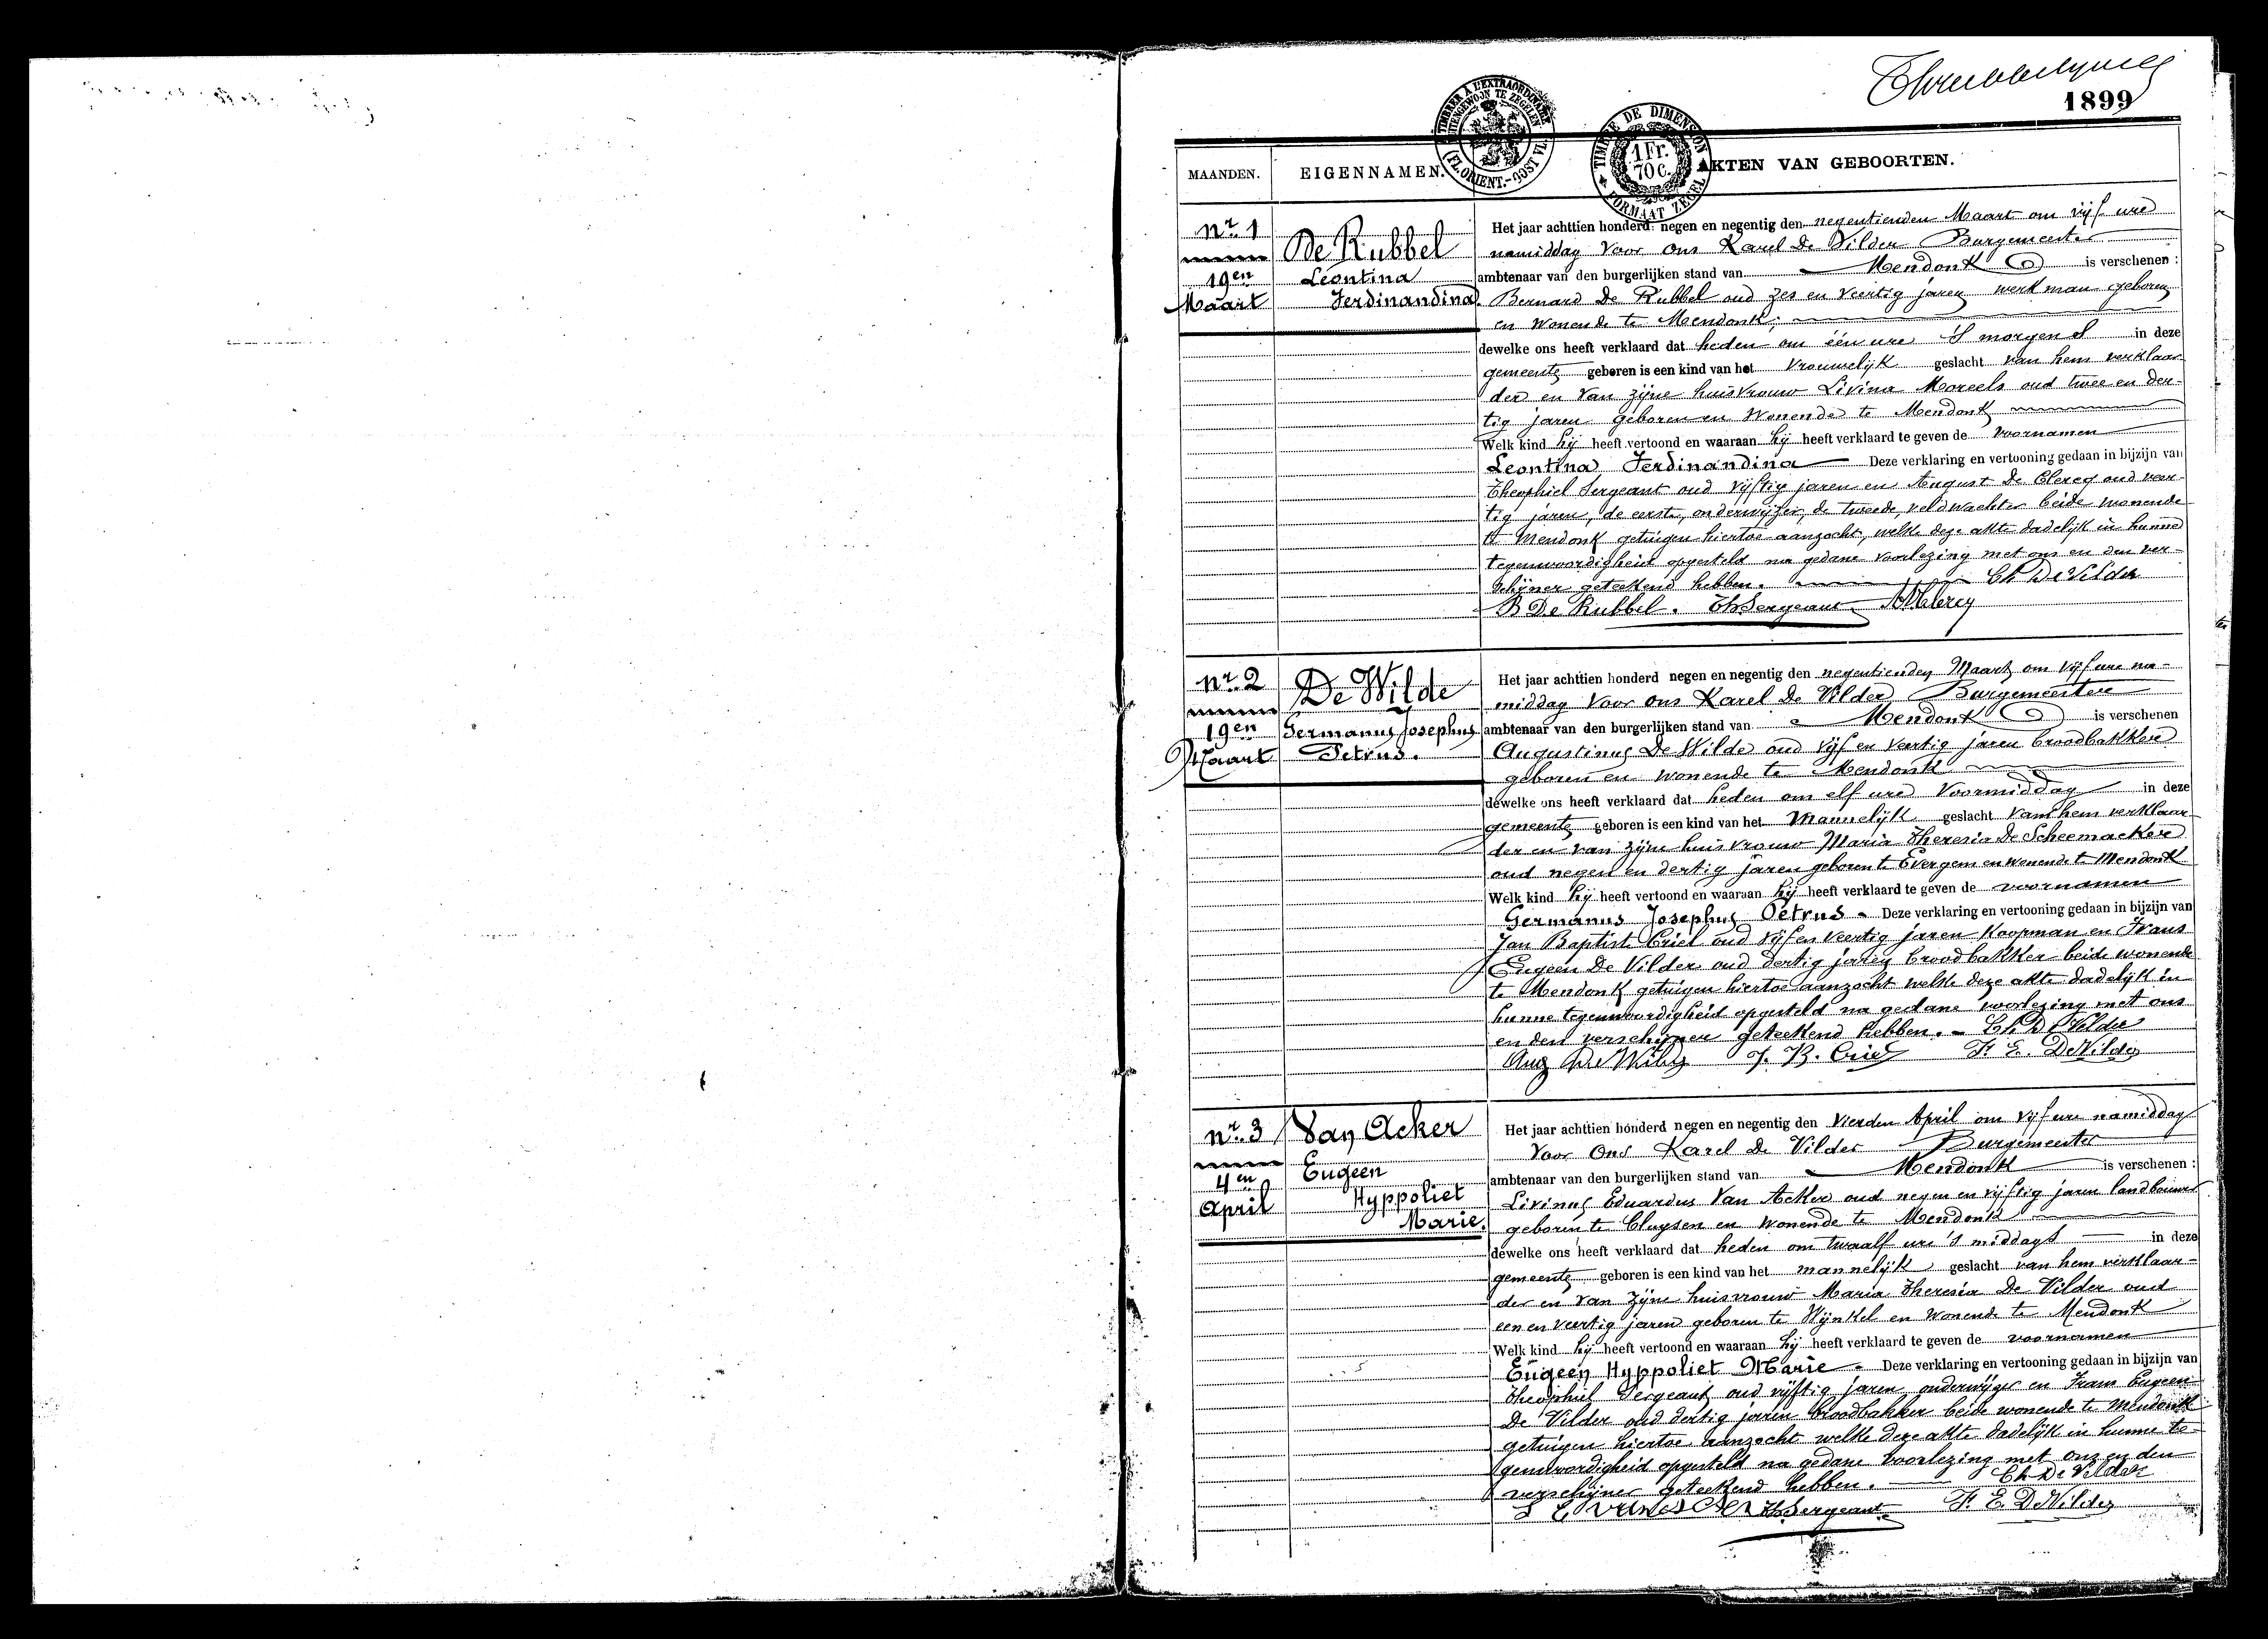 1899
TIMBRER A L'EXTRAORDINAIRE
BUITENGEWOON TE ZEGELEN
(FL. ORIENT.-OOST VL.)
TIMBRE DE DIMENSION
1 Fr.
70 c.
FORMAAT ZEGEL
MAANDEN.
EIGENNAMEN.
AKTEN VAN GEBOORTEN.
nr. 1
19en
Maart
De Rubbel
Leontina
Ferdinandina.
Het jaar achttien honderd negen en negentig den negentienden Maart om vijf ure
namiddag voor ons Karel De Vilder Burgemeester
ambtenaar van den burgerlijken stand van Mendonk is verschenen :
Bernard De Rubbel oud zes en veertig jaren werkman geboren
en wonende te Mendonk;
dewelke ons heeft verklaard dat heden om één ure 's morgens in deze
gemeente geboren is een kind van het vrouwelijk geslacht van hem verklaar-
der en van zijne huisvrouw Livina Moreels oud twee en der-
tig jaren geboren en wonende te Mendonk
Welk kind hij heeft vertoond en waaraan hij heeft verklaard te geven de voornamen
Leontina Ferdinandina Deze verklaring en vertooning gedaan in bijzijn van
Theophiel Sergeant oud vijftig jaren en August De Clercq oud veer-
tig jaren, de eerste, onderwijzer, de tweede, veldwachter beide wonende
te Mendonk getuigen hiertoe aanzocht, welke deze akte dadelijk in hunne
tegenwoordigheid opgesteld na gedane voorlezing met ons en den ver-
schijner geteekend hebben. Ch De Vilder
B De Rubbel. Th Sergeant
nr. 2
19en
Maart
De Wilde
Germanus Josephus
Petrus.
Het jaar achttien honderd negen en negentig den negentienden Maart om vijf ure na-
middag voor ons Karel De Vilder Burgemeester
ambtenaar van den burgerlijken stand van Mendonk is verschenen
Augustinus De Wilde oud vijf en veertig jaren broodbakker
geboren en wonende te Mendonk
dewelke ons heeft verklaard dat heden om elf ure voormiddag in deze
gemeente geboren is een kind van het mannelijk geslacht van hem verklaar-
der en van zijne huisvrouw Maria Theresia De Scheemaeker
oud negen en dertig jaren geboren te Evergem en wonende te Mendonk
Welk kind hij heeft vertoond en waaraan hij heeft verklaard te geven de voornamen
Germanus Josephus Petrus - Deze verklaring en vertooning gedaan in bijzijn van
Jan Baptist Criel oud vijf en veertig jaren koopman en Frans
Eugeen De Vilder oud dertig jaren broodbakker beide wonende
te Mendonk getuigen hiertoe aanzocht welke deze akte dadelijk in
hunne tegenwoordigheid opgesteld na gedane voorlezing met ons
en den verschijner geteekend hebben. - Ch De Vilder
Aug De Wilde J. B. Criel F. E. De Vilder
nr. 3
4en
April
Van Acker
Eugeen
Hyppoliet
Marie.
Het jaar achttien honderd negen en negentig den vierden April om vijf ure namiddag
voor ons Karel De Vilder Burgemeester
ambtenaar van den burgerlijken stand van Mendonk is verschenen :
Livinus Eduardus Van Acker oud negen en vijftig jaren landbouwer
geboren te Cluysen en wonende te Mendonk
dewelke ons heeft verklaard dat heden om twaalf ure 's middags in deze
gemeente geboren is een kind van het mannelijk geslacht van hem verklaar-
der en van zijne huisvrouw Maria Theresia De Vilder oud
een en veertig jaren geboren te Wijnkel en wonende te Mendonk
Welk kind hij heeft vertoond en waaraan hij heeft verklaard te geven de voornamen
Eugeen Hyppoliet Marie - Deze verklaring en vertooning gedaan in bijzijn van
Theophiel Sergeant oud vijftig jaren onderwijzer en Frans Eugeen
De Vilder oud dertig jaren broodbakker beide wonende te Mendonk
getuigen hiertoe aanzocht welke deze akte dadelijk in hunne te-
genwoordigheid opgesteld na gedane voorlezing met ons en den
verschijner geteekend hebben. - Ch De Vilder
Th Sergeant F. E. De Vilder